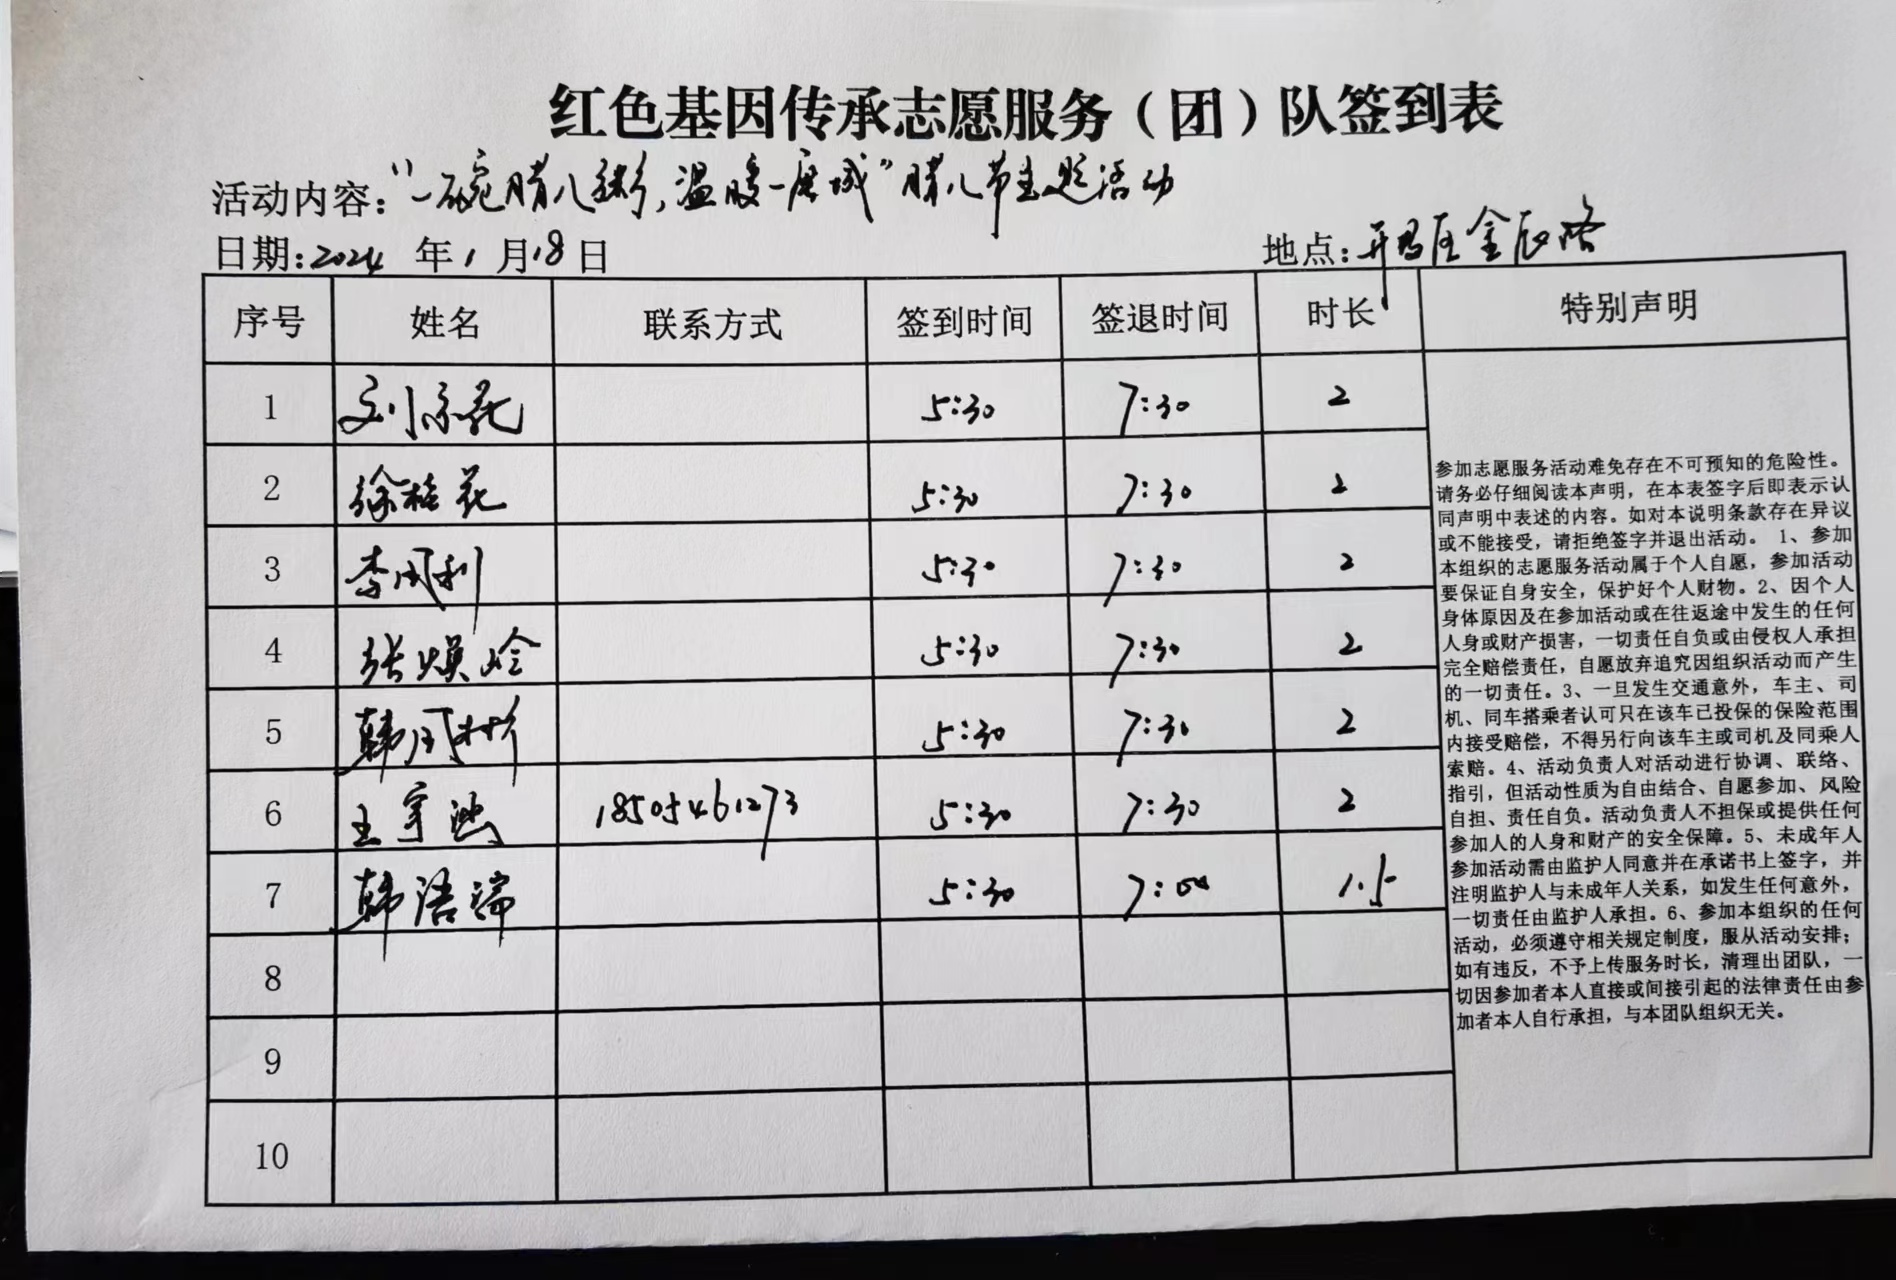 红色基因传承志愿服务（团）队签到表
活动内容：“一碗腊八粥，温暖一座城”腊八节主题活动
日期：2024 年 1 月 18 日 地点：
序号 姓名 联系方式 签到时间 签退时间 时长 特别声明
1 刘 花 5:30 7:30 2
2 徐桂花 5:30 7:30 2
3 李风利 5:30 7:30 2
4 张焕 5:30 7:30 2
5 韩风彬 5:30 7:30 2
6 王宇 18505461273 5:30 7:30 2
7 韩语 5:30 7:00 1.5
8
9
10
参加志愿服务活动难免存在不可预知的危险性。
请务必仔细阅读本声明，在本表签字后即表示认
同声明中表述的内容。如对本说明条款存在异议
或不能接受，请拒绝签字并退出活动。 1、参加
本组织的志愿服务活动属于个人自愿，参加活动
要保证自身安全，保护好个人财物。2、因个人
身体原因及在参加活动或在往返途中发生的任何
人身或财产损害，一切责任自负或由侵权人承担
完全赔偿责任，自愿放弃追究因组织活动而产生
的一切责任。3、一旦发生交通意外，车主、司
机、同车搭乘者认可只在该车已投保的保险范围
内接受赔偿，不得另行向该车主或司机及同乘人
索赔。4、活动负责人对活动进行协调、联络、
指引，但活动性质为自由结合、自愿参加、风险
自担、责任自负。活动负责人不担保或提供任何
参加人的人身和财产的安全保障。5、未成年人
参加活动需由监护人同意并在承诺书上签字，并
注明监护人与未成年人关系，如发生任何意外，
一切责任由监护人承担。6、参加本组织的任何
活动，必须遵守相关规定制度，服从活动安排；
如有违反，不予上传服务时长，清理出团队，一
切因参加者本人直接或间接引起的法律责任由参
加者本人自行承担，与本团队组织无关。